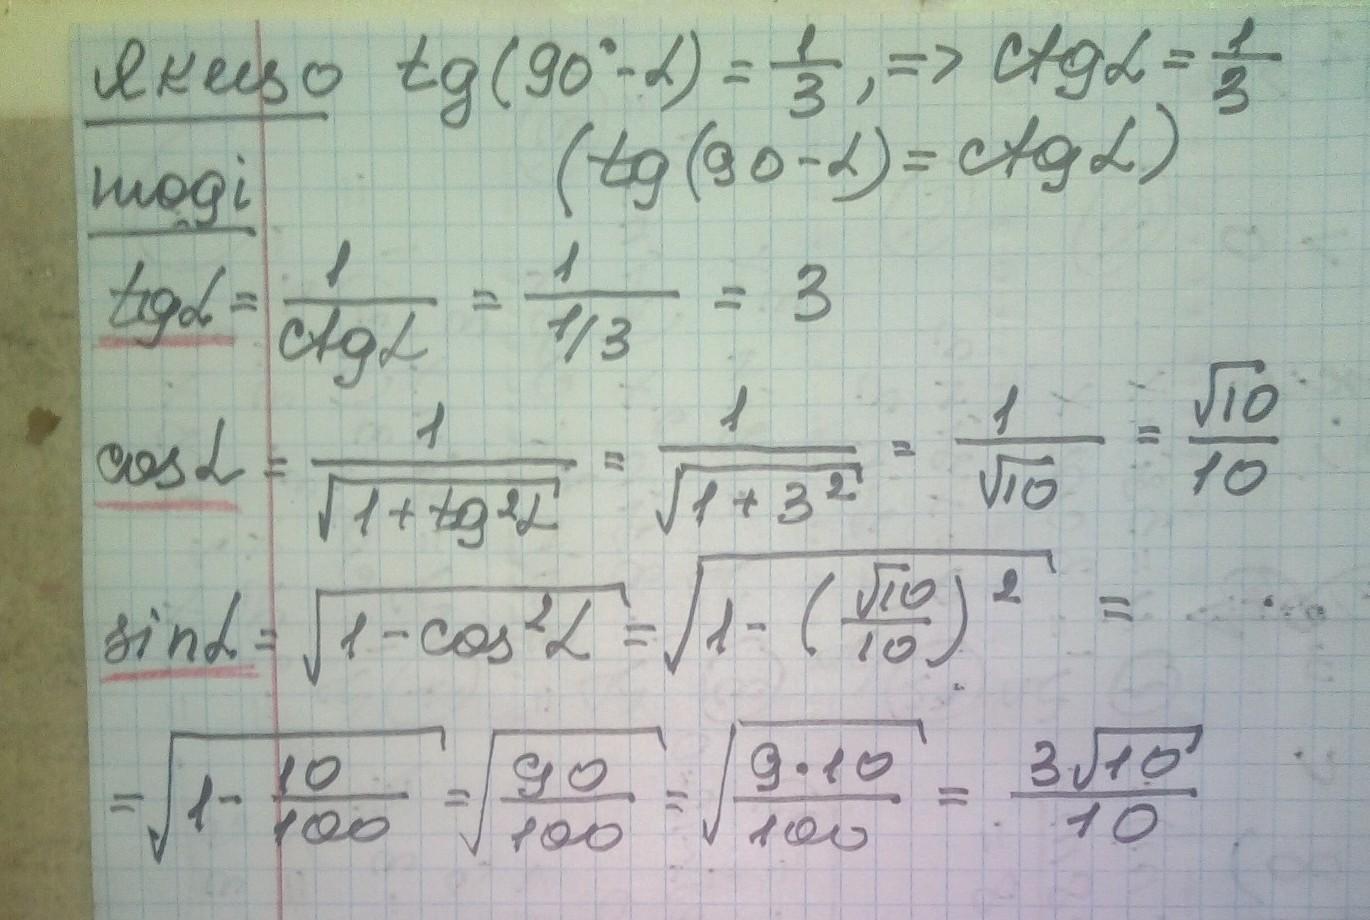 Якщо tg(90°-α) = 1/3, => ctgα = 1/3
тоді (tg(90-α) = ctgα)
tgα = 1/ctgα = 1/1/3 = 3
cosα = 1/√(1+tg²α) = 1/√(1+3²) = 1/√10 = √10/10
sinα = √(1-cos²α) = √(1-(√10/10)²) =
= √(1-10/100) = √(90/100) = √(9·10/100) = 3√10/10